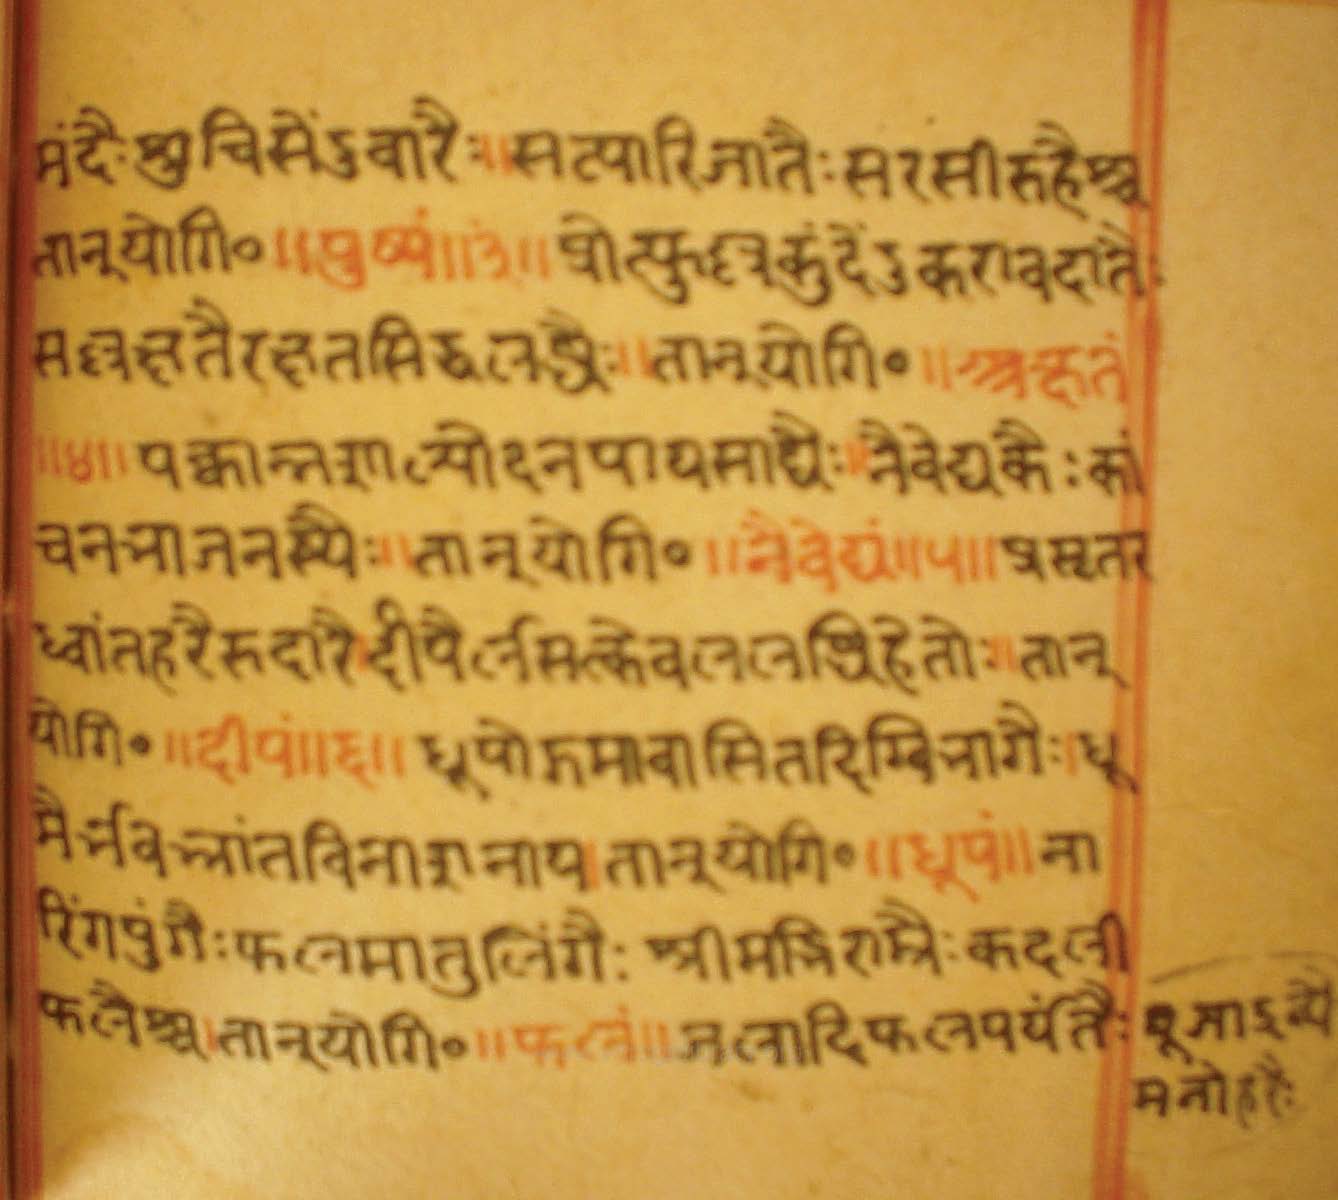 मंदैः शुचिसेंऽवारैः॥सत्पारिजातैः सरसीरुहैश्च
तान्योगि॰॥पुष्पं॥३॥प्रोत्फुल्लकुंदेंऽकरावदातैः
सल्लक्षतैरक्षतमिद्धलक्ष्यैः॥तान्योगि॰॥अक्षतं
॥४॥पक्वान्नशाल्योदनपायसाद्यैः॥नैवेद्यकैः कां
चनभाजनस्थैः॥तान्योगि॰॥नैवेद्यं॥५॥भ्रस्यतर
ध्वांतहरैरुदारै।दीपैर्लसत्केवललब्धिहेतोः॥तान्
योगि॰॥दीपं॥६॥धूपोत्तमावासितदिग्विभागैः।धू
मैर्भवभ्रांतविनाशनाय।तान्योगि॰॥धूपं॥ना
रिंगपुंगैः फलमातुलिंगैः श्रीमन्निराम्रैः कदली
फलैश्च।तान्योगि॰॥फलं॥जलादिफलपर्यंतैः पूजाद्रव्यै
मनोहरैः